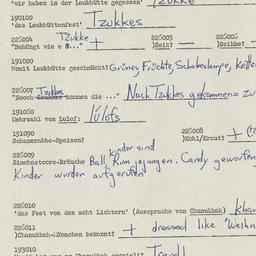 'wir haben in der Laubhütte gegessen' Tzukke
190100
'das Laubhüttenfest' Tzukkes
225004 Tzukke 225005 225006
"Behängt wie e S..." + )Seik( — )Seikke( —
191020
Womit Laubhütte geschmückt? Grünes, Früchte, Schokolampe, Ketten
225007 Tzukkes
"Nooch kommen die ..." Nach Tzukkes gekommen = zu
191050
Mehrzahl von Lulef: Lulofs
191090 225008
Schanerabbe-Speisen? )Kohl/Kraut? + (?)
225009 Kinder sind
Simchastoore-Bräuche Ball, Rum gegangen. Candy geworfen
Kinder wurden aufgerufen
225010
'das Fest von den acht Lichtern' (Aussprache von Chanukkah)
225011
)Chanukkah-Männchen bekannt? + dressed like "Weihn
193010